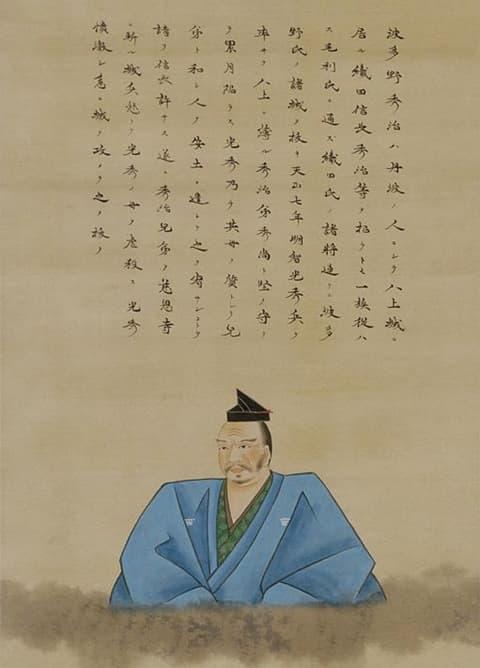 波多野秀治ハ丹波ノ人ニシテ八上城ニ
居ル織田信長秀治等ヲ招クトモ一族從ハ
ス毛利氏ニ通ズ織田氏ノ諸將進テ波多
野氏ノ諸城ヲ抜キ天正七年明智光秀兵ヲ
率ヰテ八上ニ薄ル秀治弟秀尚ト堅ク守リ
テ累月陥ラス光秀乃チ其母ヲ質トシテ兄
弟ト和シ人ヲ安土ニ達シテ之ヲ宥サンコトヲ
請フ信長許サス遂ニ秀治兄弟ヲ慈恩寺
ニ斬ル城兵怒リテ光秀ノ母ヲ虐殺ス光秀
憤激シ急ニ城ヲ攻メテ之ヲ抜ク